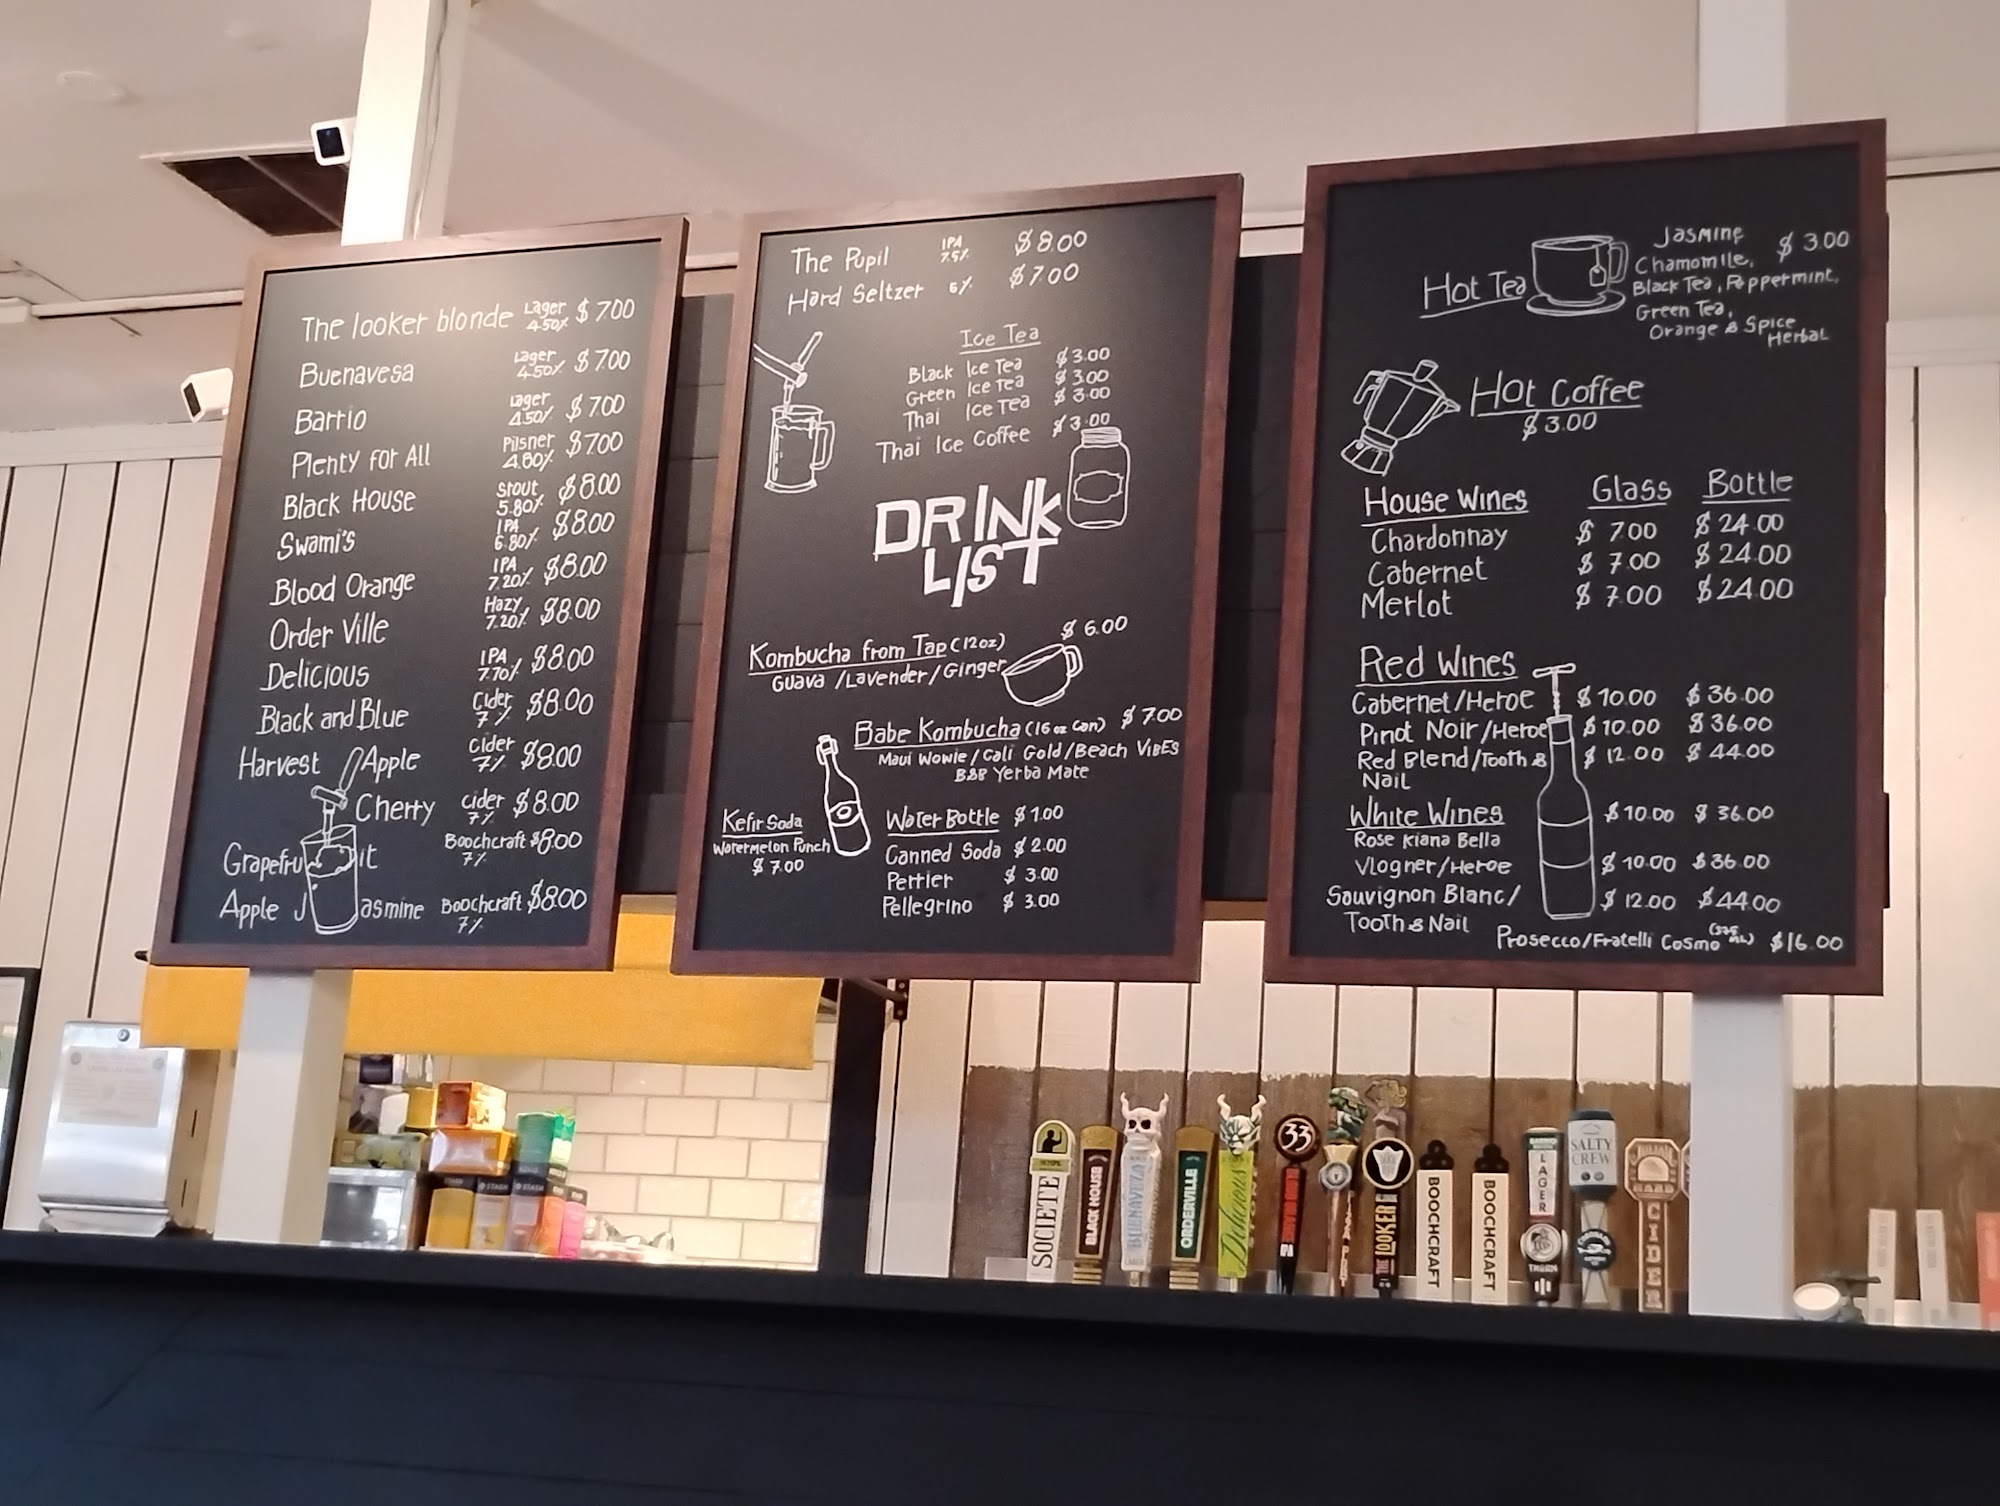 The looker blonde Lager 4.50% $7.00
Buenavesa Lager 4.50% $7.00
Barrio Lager 4.50% $7.00
Plenty for All Pilsner 4.80% $7.00
Black House Stout 5.80% $8.00
Swami's IPA 6.80% $8.00
Blood Orange IPA 7.20% $8.00
Order Ville Hazy 7.20% $8.00
Delicious IPA 7.70% $8.00
Black and Blue Cider 7% $8.00
Harvest Apple Cider 7% $8.00
Cherry Cider 7% $8.00
Grapefruit Boochcraft 7% $8.00
Apple Jasmine Boochcraft 7% $8.00
The Pupil IPA 7.5% $8.00
Hard Seltzer 6% $7.00
Ice Tea
Black Ice Tea $3.00
Green Ice Tea $3.00
Thai Ice Tea $3.00
Thai Ice Coffee $3.00
DRINK
LIST
Kombucha from Tap (12oz) $6.00
Guava /Lavender/Ginger
Babe Kombucha (16 oz Can) $7.00
Maui Wowie/Cali Gold/Beach VIBES
B&B Yerba Mate
Kefir Soda
Watermelon Punch
$7.00
Water Bottle $1.00
Canned Soda $2.00
Perrier $3.00
Pellegrino $3.00
Hot Tea
Jasmine $3.00
Chamomile,
Black Tea, Peppermint,
Green Tea,
Orange & Spice
Herbal
Hot Coffee
$3.00
House Wines Glass Bottle
Chardonnay $7.00 $24.00
Cabernet $7.00 $24.00
Merlot $7.00 $24.00
Red Wines
Cabernet/Heroe $10.00 $36.00
Pinot Noir/Heroe $10.00 $36.00
Red Blend/Tooth & $12.00 $44.00
Nail
White Wines $10.00 $36.00
Rose Kiana Bella
Viogner/Heroe $10.00 $36.00
Sauvignon Blanc/ $12.00 $44.00
Tooth & Nail
Prosecco/Fratelli Cosmo (375 mL) $16.00
SOCIETE
BLACK HOUSE
BUENAVEZA
LAGER
ORDERVILLE
Delicious
STONE
33
BLOOD ORANGE
IPA
THE LOOKER
BOOCHCRAFT
BOOCHCRAFT
BARRIO
LAGER
THORN
SALTY
CREW
JULIAN
HARD
CIDER
STASH
STASH